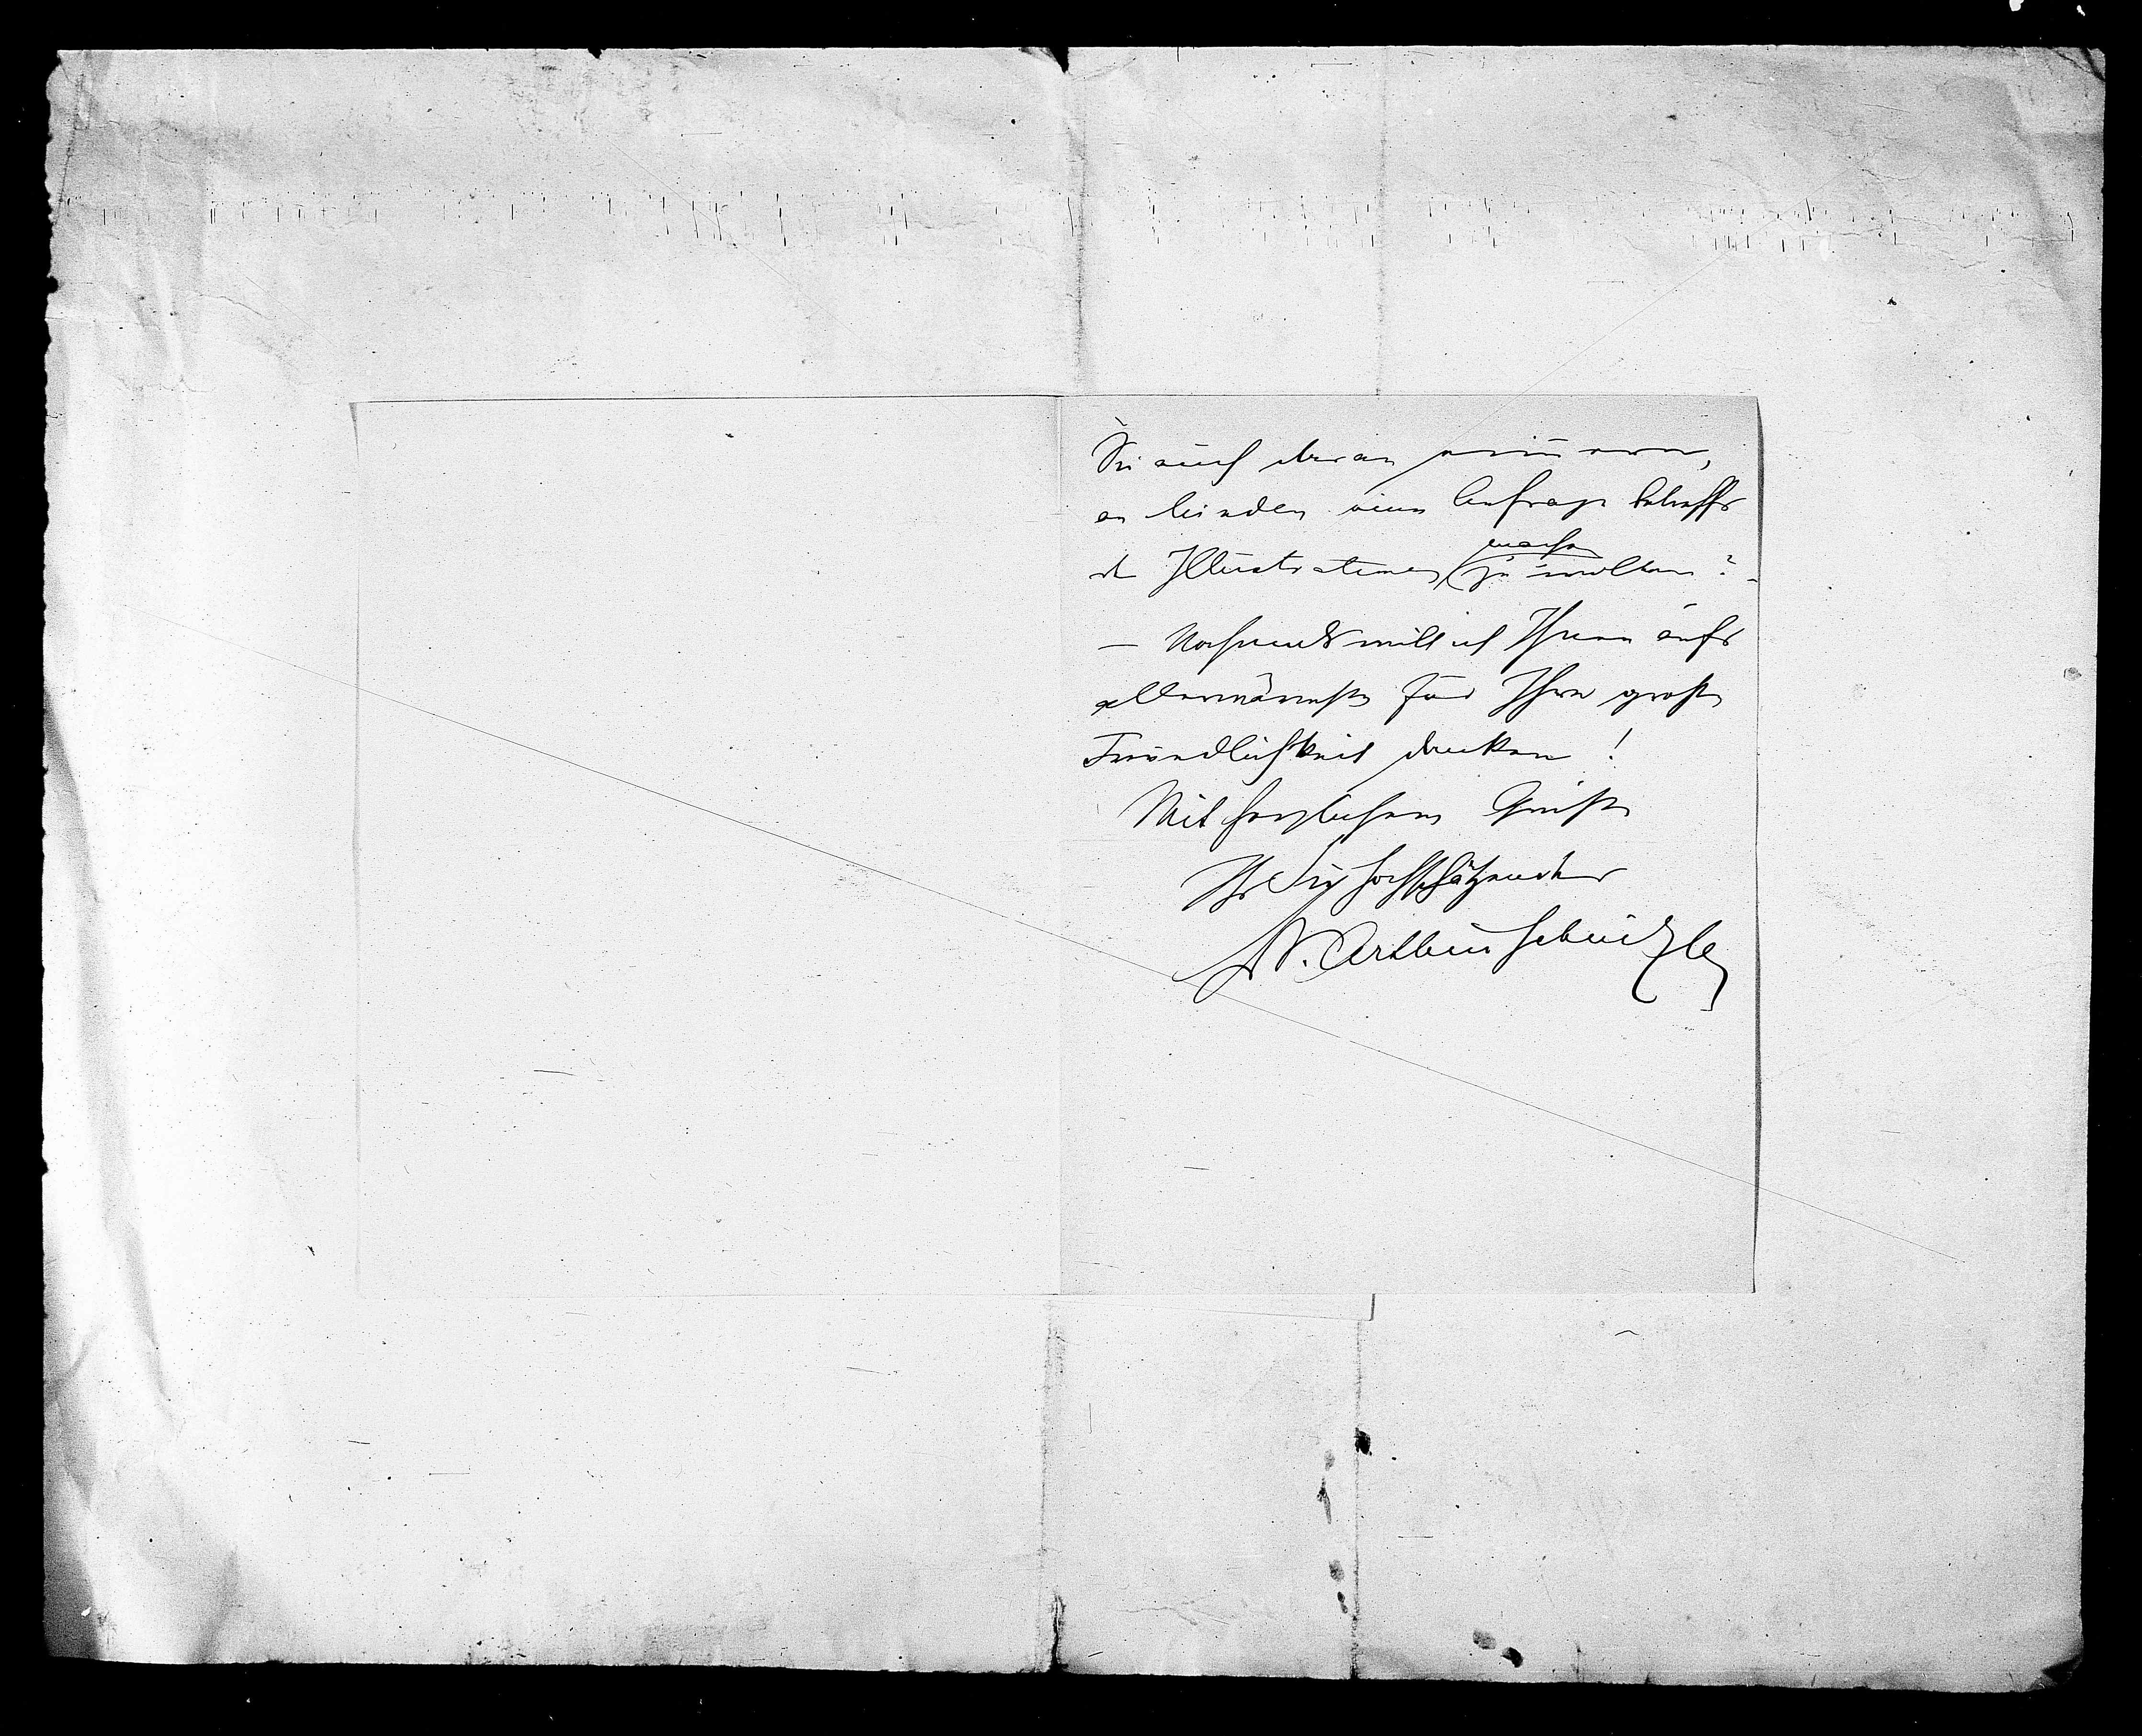 Sie auch daran erinnern,
an Linden eine Anfrage betreffs
der Illustrationen machen zu wollen? –
— Nochmals will ich Ihnen aufs
allerwärmste für Ihre große
Freundlichkeit danken!
Mit herzlichem Gruße
Ihr Sie hochschätzender
Dr. Arthur Schnitzler